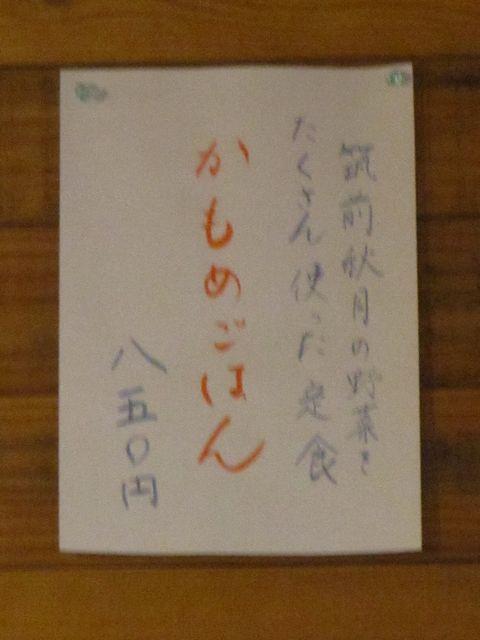 筑前秋月の野菜を
たくさん使った定食
かもめごはん
八五〇円